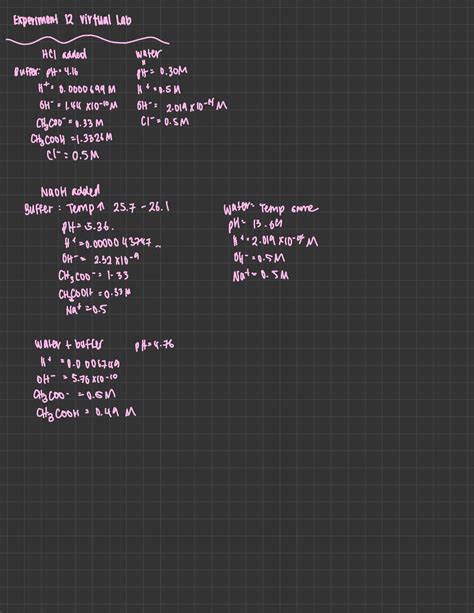 Experiment 12 Virtual Lab
HCl added
Buffer: pH = 4.16
H⁺ = 0.0000699 M
OH⁻ = 1.44 x10⁻¹⁰ M
CH₃COO⁻ = 0.33 M
CH₃COOH = 1.3326 M
Cl⁻ = 0.5 M
Water
pH = 0.30M
H⁺ = 0.5 M
OH⁻ = 2.019 x 10⁻¹⁴ M
Cl⁻ = 0.5 M
NaOH added
Buffer: Temp ↑ 25.7 - 26.1
pH = 5.36
H⁺ = 0.00000 43747
OH⁻ = 2.32 x10⁻⁹
CH₃COO⁻ = 1.33
CH₃COOH = 0.33 M
Na⁺ = 0.5
Water = Temp same
pH = 13.69
H⁺ = 2.019 x10⁻¹⁴ M
OH⁻ = 0.5 M
Na⁺ = 0.5 M
Water + buffer pH = 4.76
H⁺ =
OH⁻ = 5.76 x10⁻¹⁰
CH₃COO⁻ = 0.5 M
CH₃COOH = 0.49 M